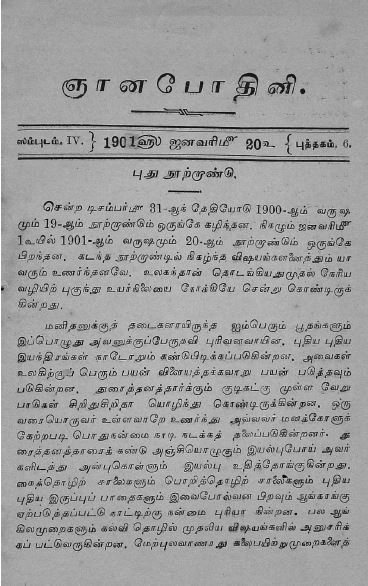 ஞானபோதினி.
ஸம்புடம். IV. } 1901௵ ஜனவரி௴ 20௳ { புத்தகம். 6.
புது நூற்றாண்டு.
சென்ற டிசம்பர்௴ 31-ஆந் தேதியோடு 1900-ஆம் வருஷ
மும் 19-ஆம் நூற்றாண்டும் ஒருங்கே கழிந்தன. நிகழும் ஜனவரி௴
1௳யில் 1901-ஆம் வருஷமும் 20-ஆம் நூற்றாண்டும் ஒருங்கே
பிறந்தன. கடந்த நூற்றாண்டில் நிகழ்ந்த விஷயங்களனைத்தும் யா
வரும் உணர்ந்தனவே. உலகந்தான் தொடங்கியதுமுதல் நேரிய
வழியிற் புகுந்து உயர்நிலையை நோக்கியே சென்று கொண்டிருக்
கின்றது.
மனிதனுக்குத் தடைகளாயிருந்த ஐம்பெரும் பூதங்களும்
இப்பொழுது அவனுக்குப்பேருதவி புரிவனவாயின. புதிய புதிய
இயந்திரங்கள் நாடோறும் கண்டுபிடிக்கப்படுகின்றன. அவைகள்
உலகிற்குப் பெரும் பயன் விளையத்தக்கவாறு பயன் படுத்தவும்
படுகின்றன. துரைத்தனத்தார்க்கும் குடிகட்கு முள்ள வேறு
பாடுகள் சிறிதுசிறிதா யொழிந்து கொண்டிருக்கின்றன. ஒரு
வரையொருவர் உள்ளவாறே உணர்ந்து அவ்வவர் மனக்கோளுக்
கேற்றபடி பொதுநன்மை நாடி நடக்கத் தலைப்படுகின்றனர். து
ரைத்தனத்தாரைக் கண்டு அஞ்சியொழுகும் இயல்புபோய் அவர்
களிடத்து அன்புகொள்ளும் இயல்பு உதித்தோங்குகின்றது.
கைத்தொழிற் சாலைகளும் பொறித்தொழிற் சாலைகளும் புதிய
புதிய இருப்புப் பாதைகளும் இவைபோல்வன பிறவும் ஆங்காங்கு
ஏற்படுத்தப்பட்டு நாட்டிற்கு நன்மை புரியா நின்றன. பல ஆங்
கிலமுறைகளும் கல்வி தொழில் முதலிய விஷயங்களில் அனுசரிக்
கப் பட்டுவருகின்றன. மேற்புலவாணரது கலைபயிற்றுமுறைகளைத்